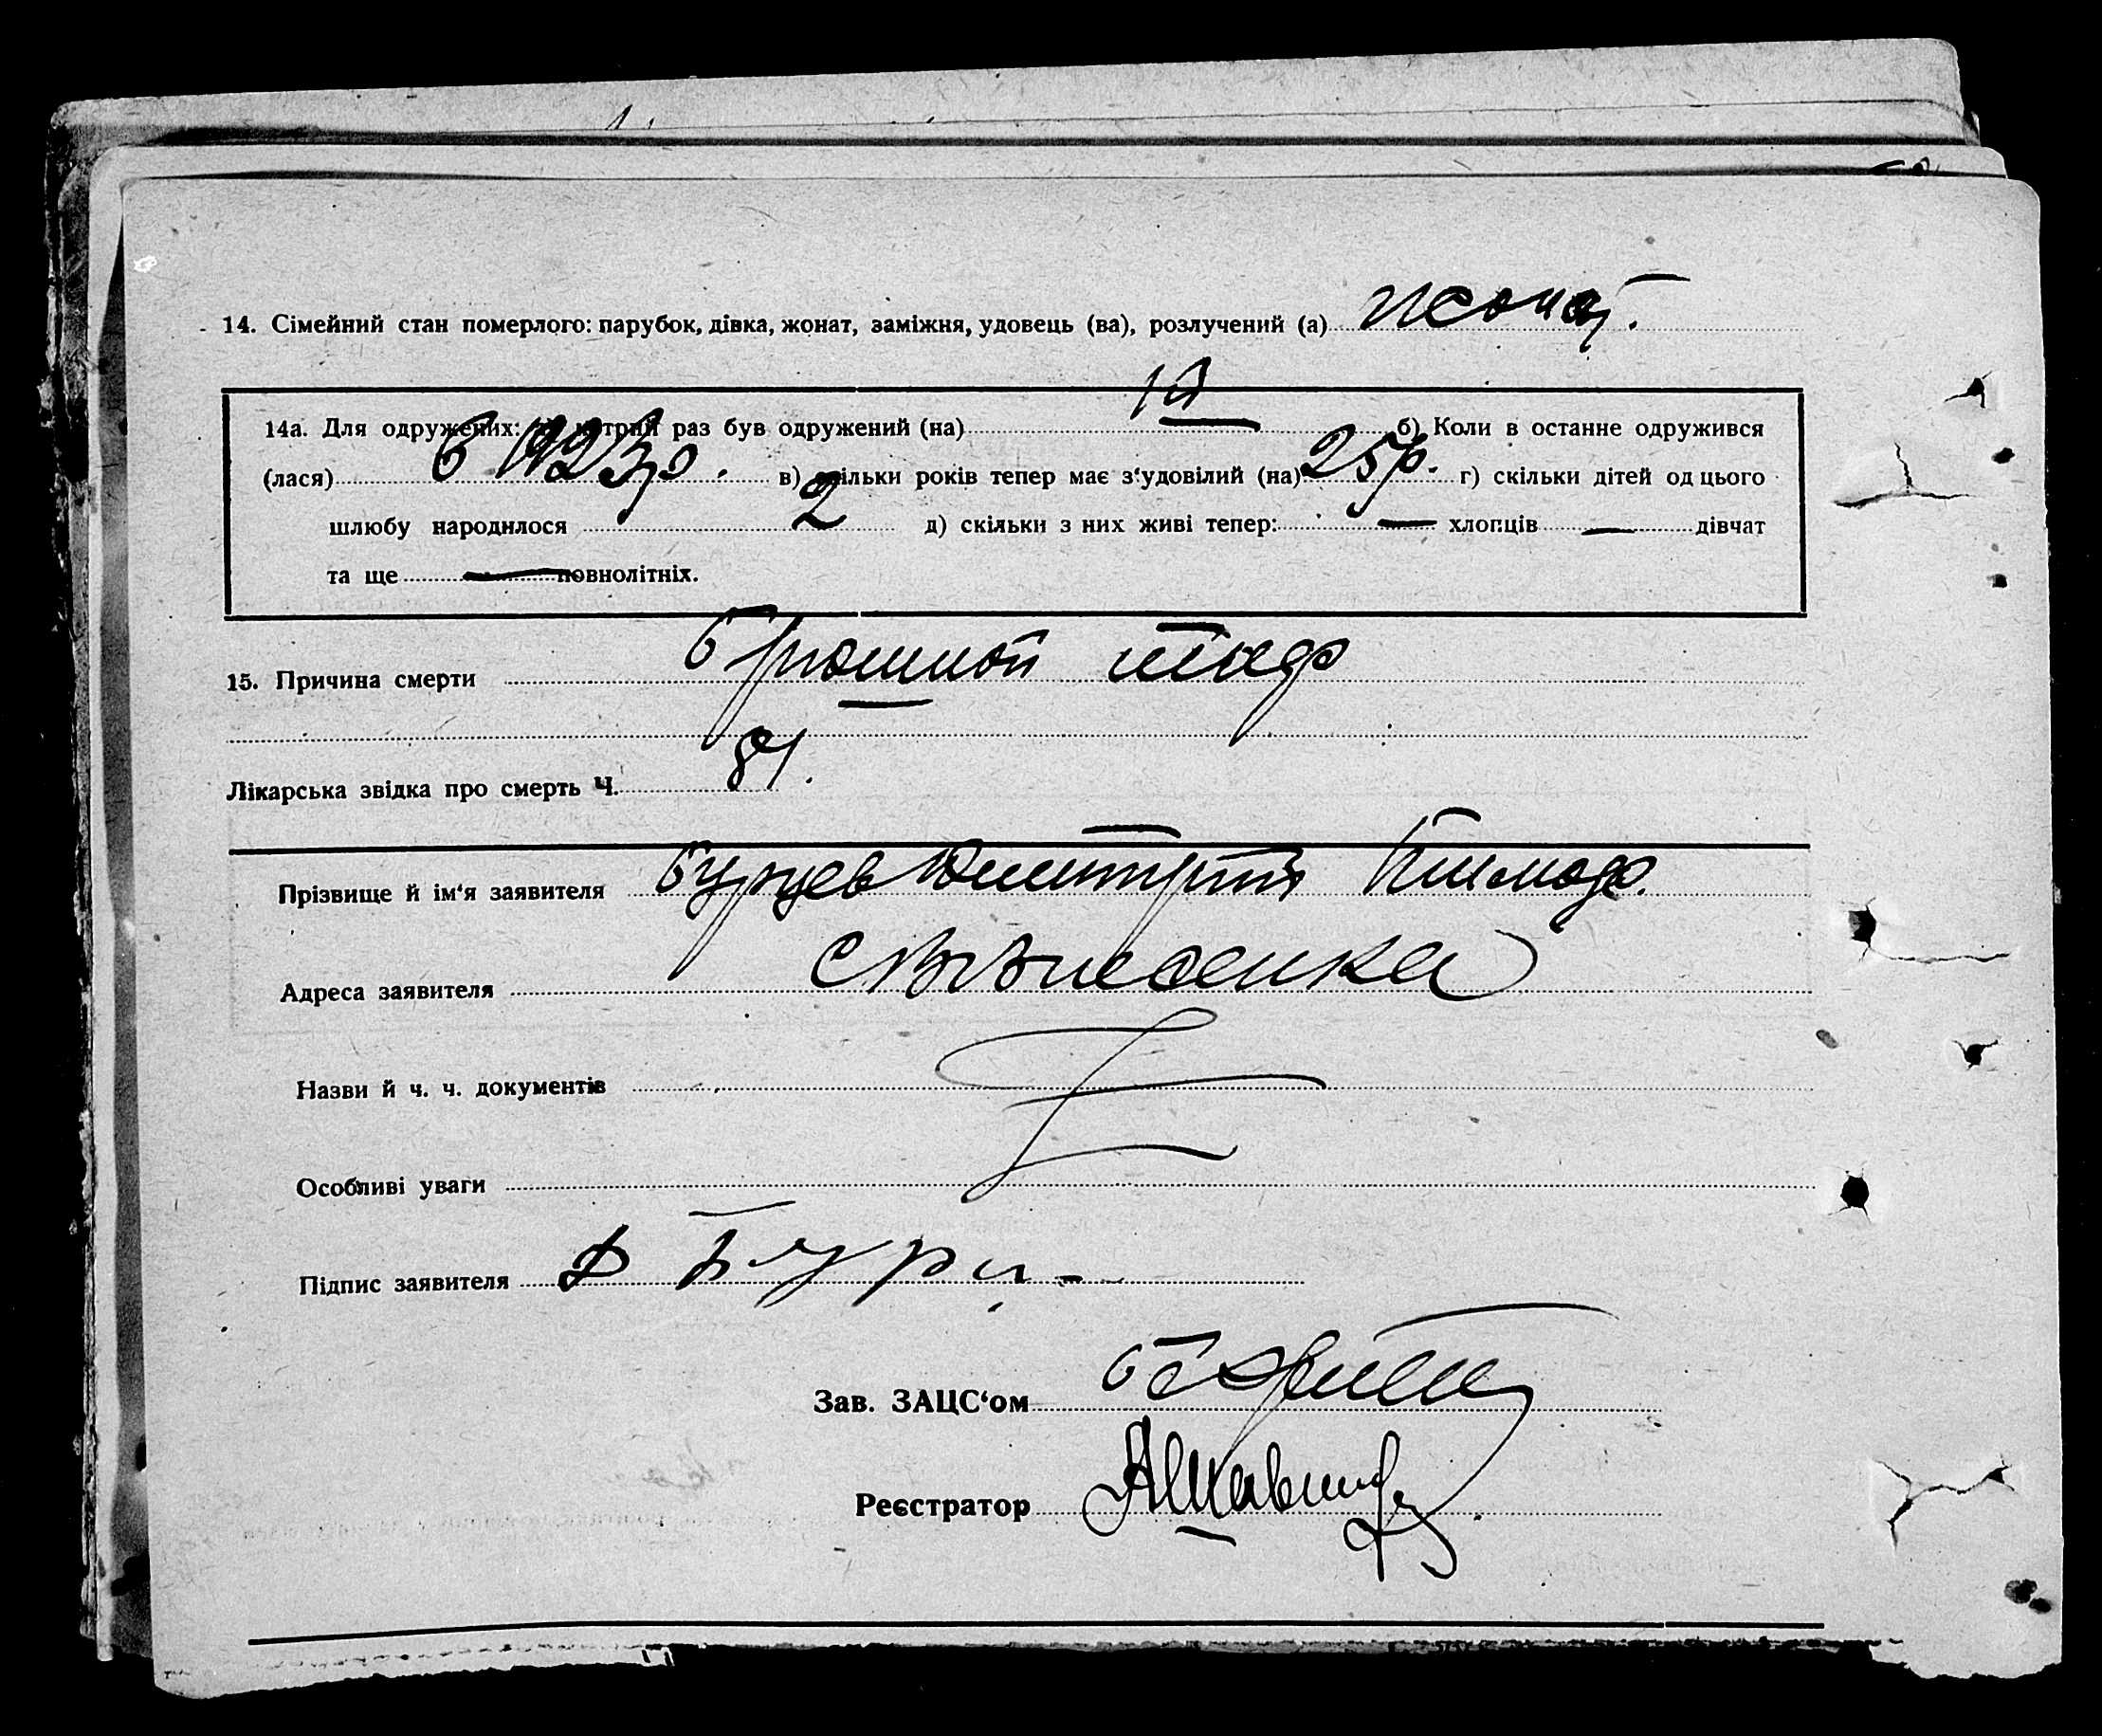 14. Сімейний стан померлого: парубок, дівка, жонат, заміжня, удовець (ва), розлучений (а) жонат.
14а. Для одружених: котрий раз був одружений (на) 1й б) Коли в останне одружився
(лася) в 1923р. в) скільки років тепер має з‘удовілий (на) 25р. г) скільки дітей од цього
шлюбу народилося 2 д) скільки з них живі тепер: — хлопців — дівчат
та ще — повнолітніх.
15. Причина смерти брюшной тиф
Лікарська звідка про смерть Ч. 81.
Прізвище й ім‘я заявителя Бурцев Дмитрий Тимоф.
Адреса заявителя с Вознесенка
Назви й ч. ч. документів
Особливі уваги
Підпис заявителя Д Бурц-
Зав. ЗАЦС‘ом
Реєстратор